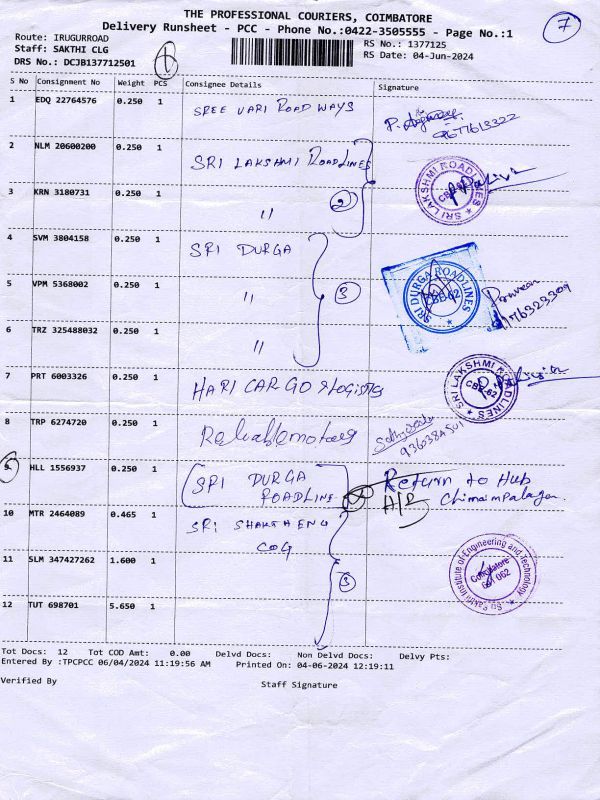 THE PROFESSIONAL COURIERS, COIMBATORE
Delivery Runsheet - PCC - Phone No.:0422-3505555 - Page No.:1
7
Route: IRUGURROAD
RS No.: 1377125
Staff: SAKTHI CLG
RS Date: 04-Jun-2024
DRS No.: DCJB137712501
S No Consignment No Weight PCS Consignee Details Signature
1 EDQ 22764576 0.250 1 SREE VARI ROADWAYS
2 NLM 20600200 0.250 1 SRI LAKSHMI ROADLINES
SRI LAKSHMI ROADLINES CBE-62
3 KRN 3180731 0.250 1 〃
2
4 SVM 3804158 0.250 1 SRI DURGA
SRI DURGA ROADLINES CBE-62
5 VPM 5368002 0.250 1 〃
3
6 TRZ 325488032 0.250 1 〃
7 PRT 6003326 0.250 1 HARI CARGO & LOGISTICS
SRI LAKSHMI ROADLINES CBE-62
8 TRP 6274720 0.250 1 Reliable motors
9 HLL 1556937 0.250 1 SRI DURGA ROADLINE
Return to Hub
10 MTR 2464089 0.465 1 SRI SHAKTHI ENG
COG
11 SLM 347427262 1.600 1
3
Sri Sakthi Institute of Engineering and Technology Coimbatore 641 062
12 TUT 698701 5.650 1
Tot Docs: 12 Tot COD Amt: 0.00 Delvd Docs: Non Delvd Docs: Delvy Pts:
Entered By :TPCPCC 06/04/2024 11:19:56 AM Printed On: 04-06-2024 12:19:11
Verified By Staff Signature